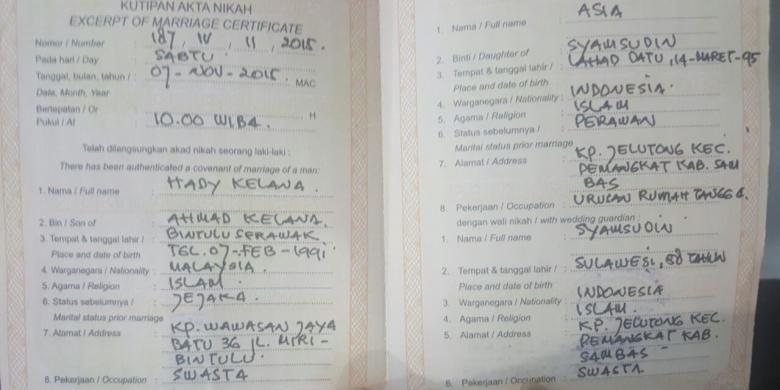 KUTIPAN AKTA NIKAH
EXCERPT OF MARRIAGE CERTIFICATE
Nomor / Number 187, IV, 11, 2015.
Pada hari / Day SABTU.
Tanggal, bulan, tahun / 07-NOV-2015. MAC
Date, Month, Year
Bertepatan / Or H
Pukul / At 10.00 WIBA.
Telah dilangsungkan akad nikah seorang laki-laki :
There has been authenticated a covenant of marriage of a man:
1. Nama / Full name : HADY KELANA.
2. Bin / Son of : AHMAD KELANA.
3. Tempat & tanggal lahir / : BINTULU SERAWAK.
Place and date of birth TGL. 07-FEB-1991
4. Warganegara / Nationality : MALAYSIA.
5. Agama / Religion : ISLAM.
6. Status sebelumnya / : JEJAKA.
Marital status prior marriage
7. Alamat / Address : KP. WAWASAN JAYA
BATU 36 JL. MIRI -
BINTULU.
8. Pekerjaan / Occupation : SWASTA
1. Nama / Full name : ASIA
2. Binti / Daughter of : SYAMSUDIN
3. Tempat & tanggal lahir / : LAHAD DATU, 14-MARET-95
Place and date of birth
4. Warganegara / Nationality : INDONESIA.
5. Agama / Religion : ISLAM
6. Status sebelumnya / : PERAWAN
Marital status prior marriage
7. Alamat / Address : KP. JELUTONG KEC.
PEMANGKAT KAB. SAM
BAS
8. Pekerjaan / Occupation : URUSAN RUMAH TANGGA.
dengan wali nikah / with wedding guardian :
1. Nama / Full name : SYAMSUDIN
2. Tempat & tanggal lahir / : SULAWESI, 58 TAHUN
Place and date of birth
3. Warganegara / Nationality : INDONESIA
4. Agama / Religion : ISLAM.
5. Alamat / Address : KP. JELUTONG KEC.
PEMANGKAT KAB.
SAMBAS
6. Pekerjaan / Occupation : SWASTA